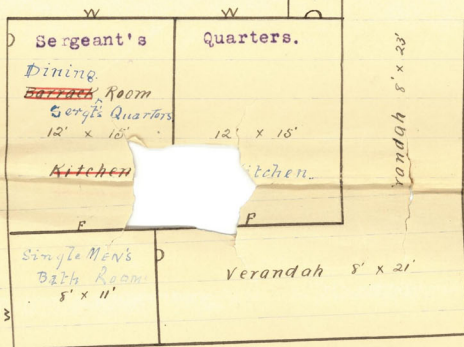 W W
Sergeant's Quarters.
Dining
Barrack Room
Sergt's Quarters
12' x 15' 12' x 15'
Kitchen itchen.
F P
Single Men's
Bath Room
8' x 11'
W
Verandah 8' x 21'
randah 8' x 23'